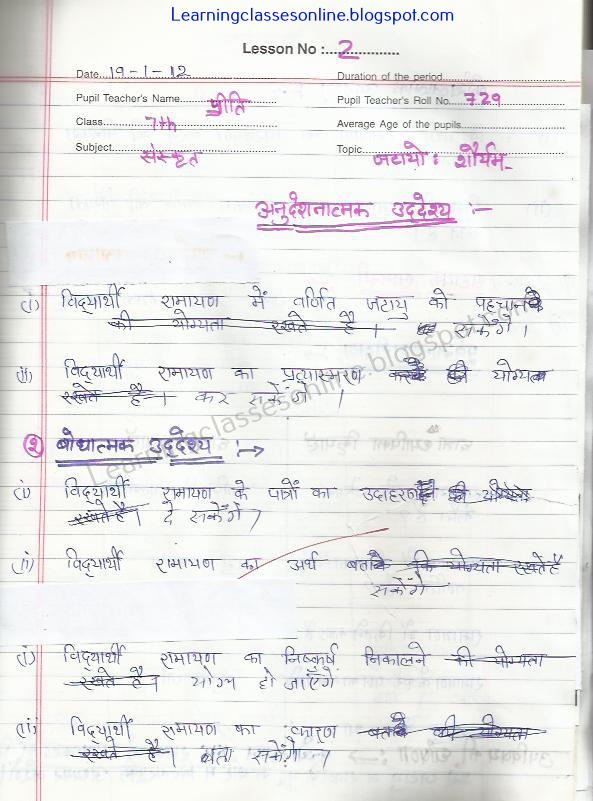 Learningclassesonline.blogspot.com
Lesson No :...2...
Date...19-1-12... Duration of the period...
Pupil Teacher's Name...प्रीति... Pupil Teacher's Roll No...729
Class...7th... Average Age of the pupils...
Subject...संस्कृत... Topic...जटायो: शौर्यम्
अनुदेशनात्मक उद्देश्य :-
(i) विद्यार्थी रामायण में वर्णित जटायु को पहचान
की योग्यता रखते है। सकेंगे।
(ii) विद्यार्थी रामायण का प्रत्यास्मरण करने की योग्यता
रखते है। कर सकेंगे।
२ बोधात्मक उद्देश्य :→
(i) विद्यार्थी रामायण के पात्रों का उदाहरण देने की योग्यता
रखते है। दे सकेंगे।
(ii) विद्यार्थी रामायण का अर्थ बताने की योग्यता रखते है
सकेंगे
(i) विद्यार्थी रामायण का निष्कर्ष निकालने की योग्यता
रखते है। योग्य हो जाएंगे
(ii) विद्यार्थी रामायण का कारण बताने की योग्यता
रखते है। बता सकेंगे।
Learningclassesonline.blogspot.com